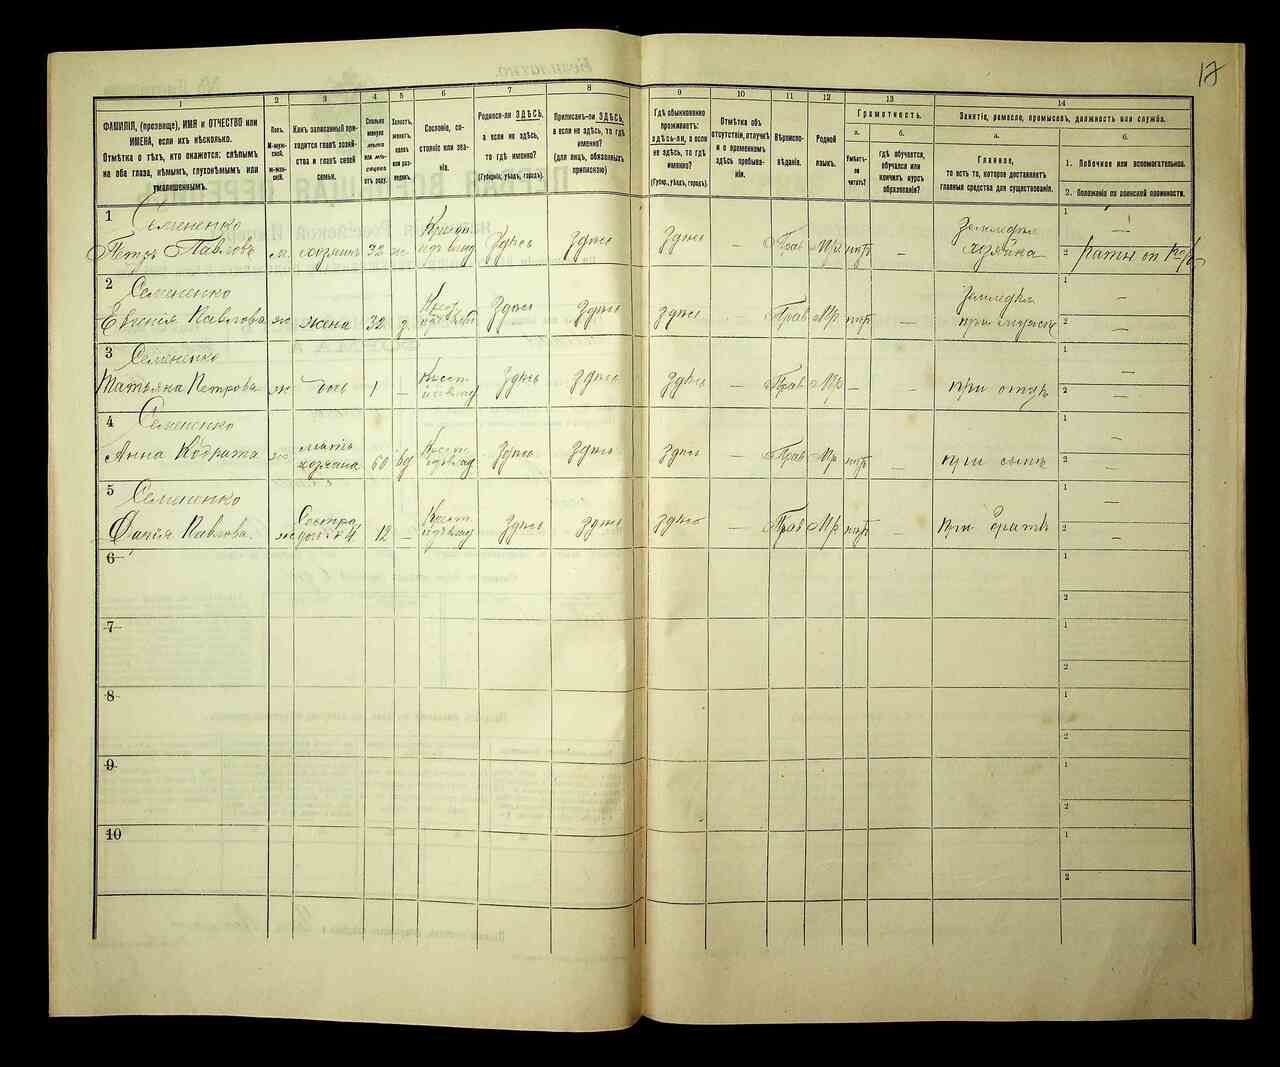 17
1 2 3 4 5 6 7 8 9 10 11 12 13 14
ФАМИЛІЯ, (прозвище), ИМЯ и ОТЧЕСТВО или
ИМЕНА, если ихъ нѣсколько.
Отмѣтка о тѣхъ, кто окажется: слѣпымъ
на оба глаза, нѣмымъ, глухонѣмымъ или
умалишеннымъ.
Полъ.
М-муж-
ской.
ж-жен-
скій.
Какъ записанный при-
ходится главѣ хозяй-
ства и главѣ своей
семьи.
Сколько
минуло
лѣтъ
или мѣ-
сяцевъ
отъ роду.
Холостъ,
женатъ,
вдовъ
или раз-
веденъ.
Сословіе, со-
стояніе или зва-
ніе.
Родился-ли ЗДѢСЬ,
а если не здѣсь,
то гдѣ именно?
(Губернія, уѣздъ, городъ).
Приписанъ-ли ЗДѢСЬ,
а если не здѣсь, то гдѣ
именно?
(для лицъ, обязанныхъ
припискою)
Гдѣ обыкновенно
проживаетъ:
здѣсь-ли, а если
не здѣсь, то гдѣ
именно?
(Губер., уѣздъ, городъ).
Отмѣтка объ
отсутствіи, отлучкѣ
и о временномъ
здѣсь пребыва-
ніи.
Вѣроиспо-
вѣданіе.
Родной
языкъ.
Грамотность.
а.
Умѣетъ-
ли
читать?
б.
гдѣ обучается,
обучался или
кончилъ курсъ
образованія?
Занятіе, ремесло, промыселъ, должность или служба.
а.
Главное,
то есть то, которое доставляетъ
главныя средства для существованія.
б.
1. Побочное или вспомогательное.
2. Положеніе по воинской повинности.
1 Семененко
Петръ Павловъ м. хозяинъ 32 ж. Здѣсь Здѣсь Здѣсь — Прав М/р нѣтъ — хозяинъ
2 Семененко
Евгенія Павлова ж жена 32 з. Здѣсь Здѣсь Здѣсь — Прав М/р нѣтъ — при мужѣ
3 Семененко
Татьяна Петрова ж дочь 1 — Крест Здѣсь Здѣсь Здѣсь — Прав М/р — — при отцѣ
4 Семененко
Анна ж мать
хозяина 60 вд Крест Здѣсь Здѣсь Здѣсь — Прав М/р нѣтъ — при сынѣ
5 Семененко
Павлова ж Сестра
12 — Крест Здѣсь Здѣсь Здѣсь — Прав М/р нѣтъ — при братѣ
6
7
8
9
10